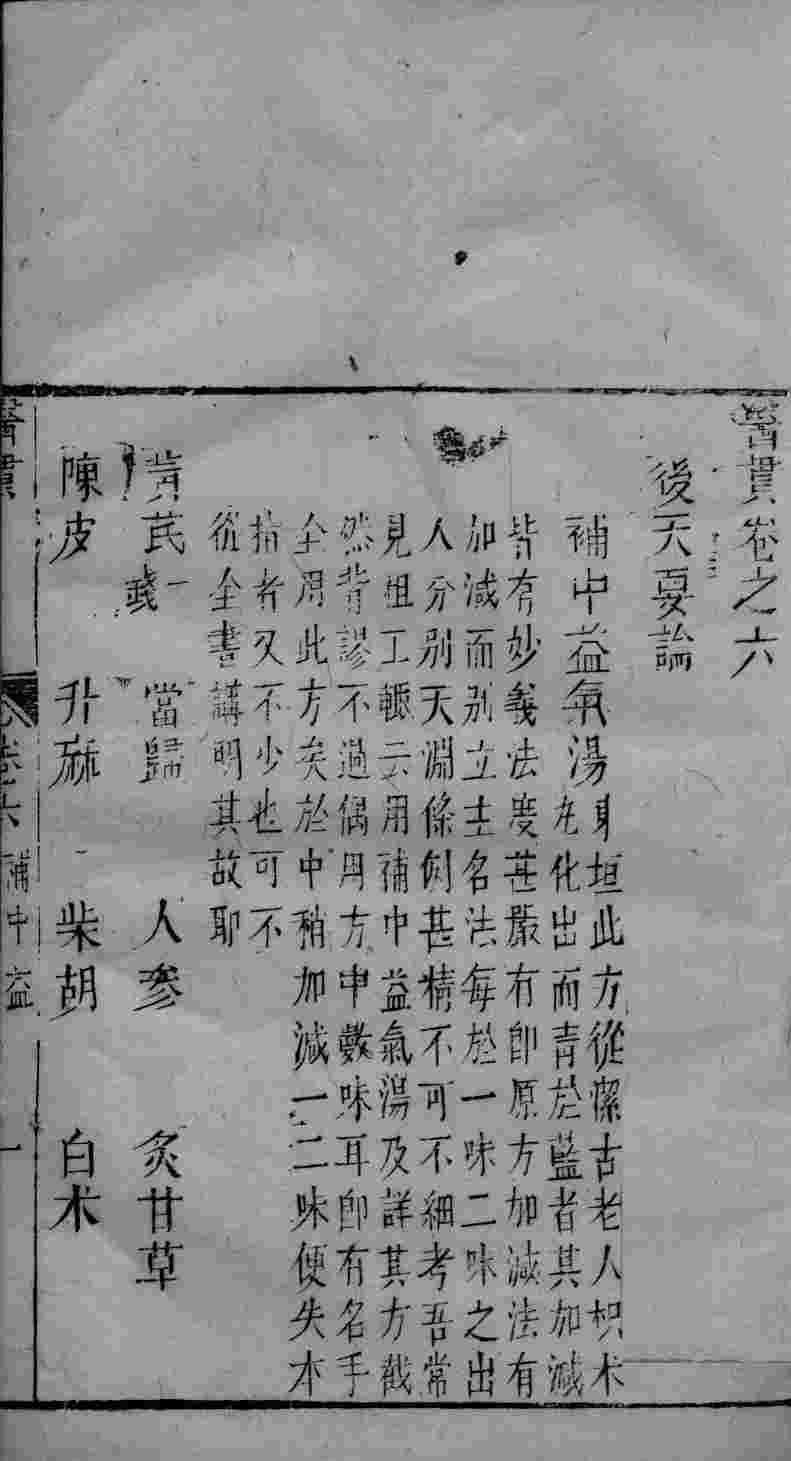 醫貫卷之六
後天要論
補中益氣湯 東垣此方從潔古老人枳术
丸化出而青於藍者其加減
皆有妙義法度甚嚴有即原方加減法有
加減而別立主名法每於一味二味之出
人分別天淵條例甚精不可不細考吾常
見粗工輒云用補中益氣湯及詳其方截
然背謬不過偶用方中數味耳卽有名手
全用此方矣於中稍加減一二味便失本
指者又不少也可不
從全書講明其故耶
黃芪一錢 當歸 人參 炙甘草
陳皮 升麻 柴胡 白术
醫貫 卷六 補中益 一